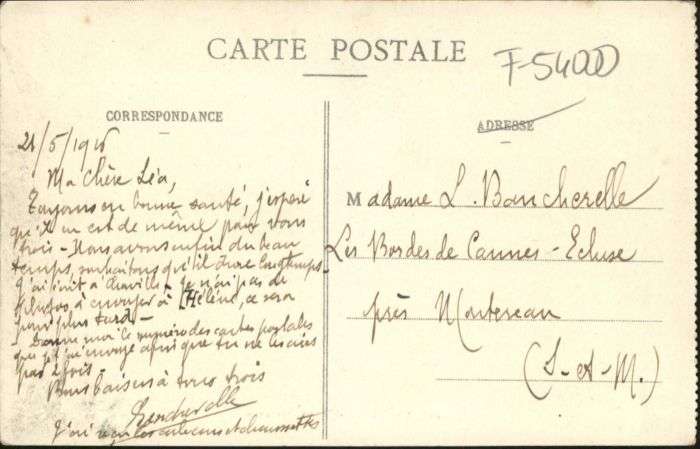 CARTE POSTALE
F-54000
CORRESPONDANCE
ADRESSE
21/5/191
Ma chère Léa,
Toujours en bonne santé, j'espère
qu'il en est de même pour vous
trois - Nous avons enfin du beau
temps, souhaitons qu'il dure longtemps -
J'ai écrit à - Je n'ai pas de
photos à envoyer à Hélène, ce sera
pour plus tard -
Donne moi le numéro des cartes postales
que je t'ai envoyé afin que tu ne les aies
pas 2 fois -
Bons baisers à tous trois
J'ai reçu les caleçons et chaussettes
Madame L. Bancherelle
Les Bordes de Cannes-Ecluse
près Montereau
(S-et-M.)